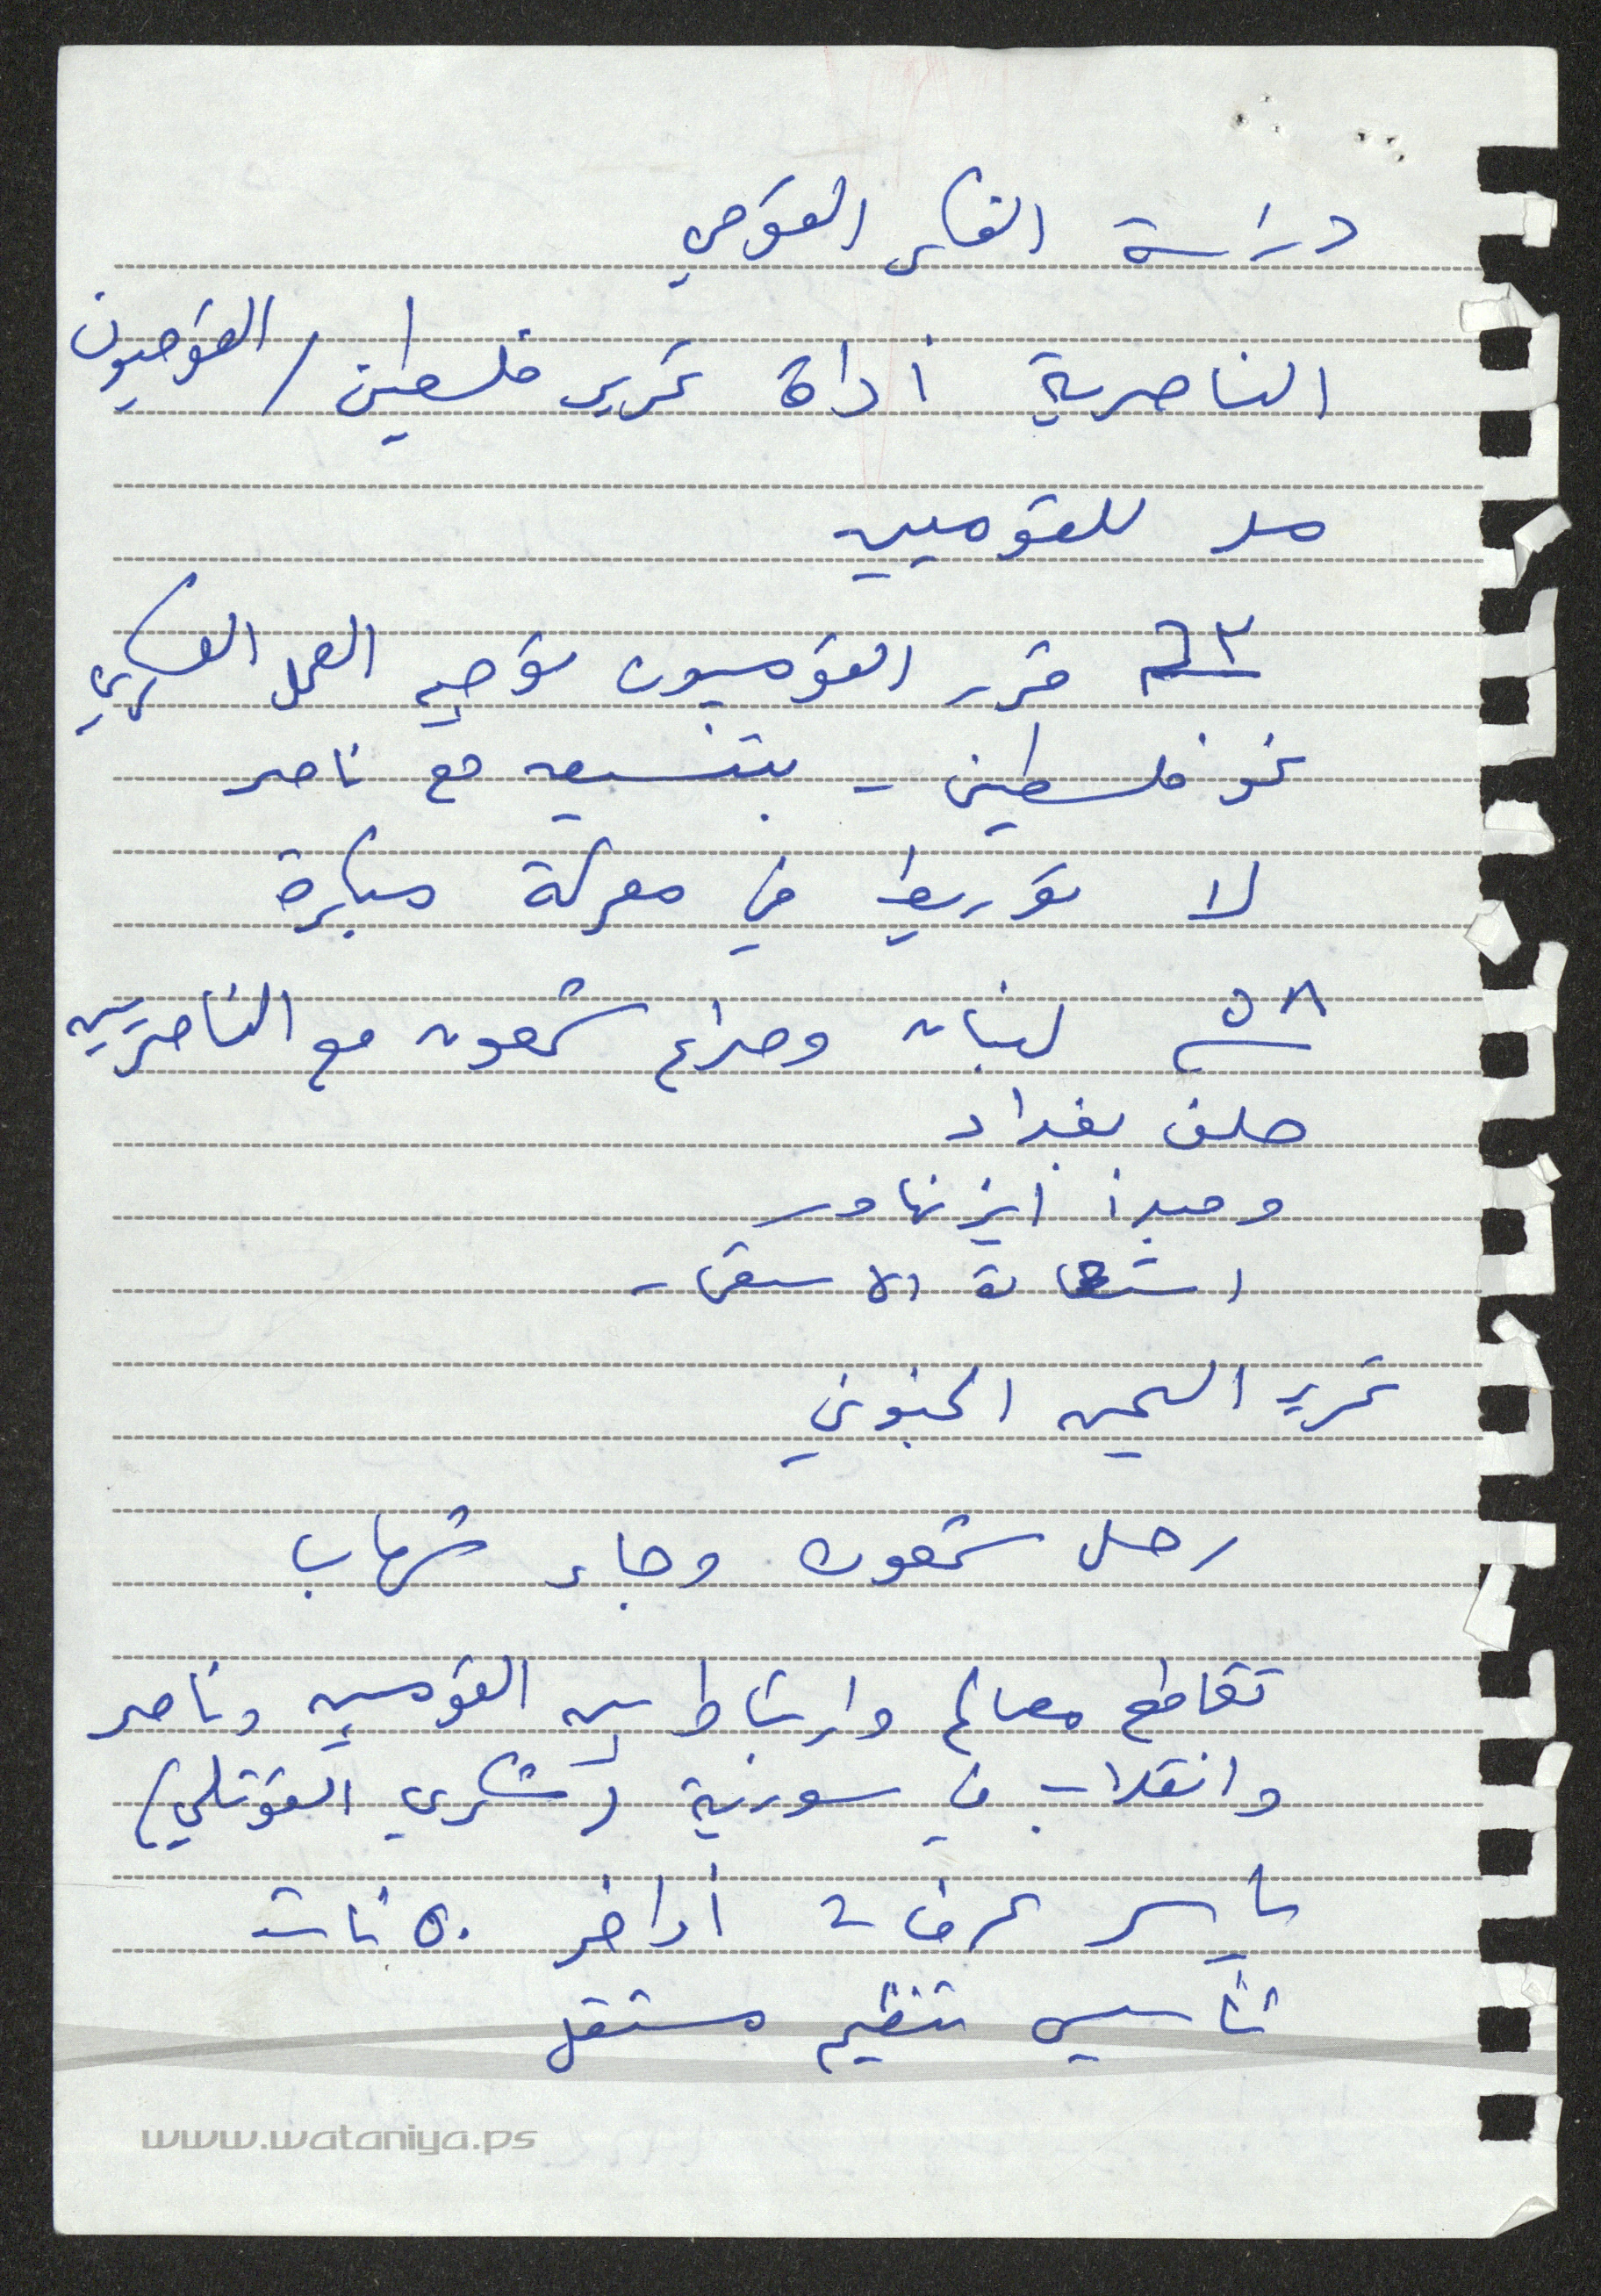 دراسة الفكر القومي
الناصرية أداة تحرير فلسطين / القوميون
مد للقوميين
٦٣ قرر القوميون توجيه العمل العسكري
نحو فلسطين - بتنسيق مع ناصر
لا توريط في معركة مبكرة
٥٨ لبنان وصراع شمعون مع الناصريين
حلف بغداد
ومبدأ ايزنهاور
الاستعمار
تحرير اليمن الجنوبي
رحل شمعون وجاء شهاب
تقاطع مصالح وارتباط بين القوميين وناصر
وانقلاب في سورية (شكري القوتلي)
ياسر عرفات أواخر ٥٠ نات
تأسيس تنظيم مستقل
www.wataniya.ps